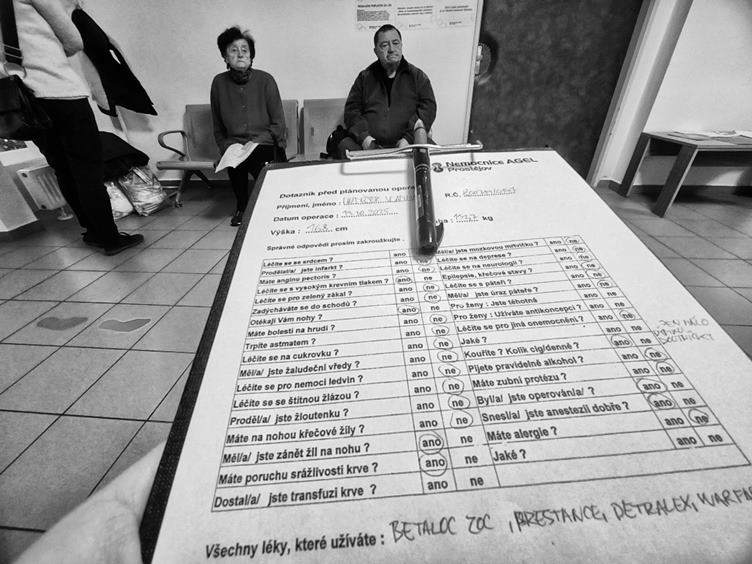 Nemocnice AGEL
Prostějov
Dotazník před plánovanou
Příjmení, jméno : R.Č.
Datum operace :
Výška : 168 cm kg
Správné odpovědi prosím zakroužkujte
Léčíte se se srdcem ? ano ne
Prodělal/a/ jste infarkt ? ano ne
Máte anginu pectoris ? ano ne
Léčíte se s vysokým krevním tlakem ? ano ne
Léčíte se pro zelený zákal ? ano ne
Zadýcháváte se do schodů ? ano ne
Otékají Vám nohy ? ano ne
Máte bolesti na hrudi ? ano ne
Trpíte astmatem ? ano ne
Léčíte se na cukrovku ? ano ne
Měl/a/ jste žaludeční vředy ? ano ne
Léčíte se pro nemoci ledvin ? ano ne
Léčíte se se štítnou žlázou ? ano ne
Proděl/a/ jste žloutenku ? ano ne
Máte na nohou křečové žíly ? ano ne
Měl/a/ jste zánět žil na nohu ? ano ne
Máte poruchu srážlivosti krve ? ano ne
Dostal/a/ jste transfuzi krve ? ano ne
Měl/a/ jste mozkovou mrtvičku ? ano ne
Léčíte se na deprese ? ano ne
Léčíte se na neurologii ? ano ne
Epilepsie, křečové stavy ? ano ne
Léčíte se s páteří ? ano ne
Měl/a/ jste úraz páteře ? ano ne
Pro ženy : Jste těhotná ano ne
Pro ženy : Užíváte antikoncepci ? ano ne
Léčíte se pro jiná onemocnění. ano ne
Jaké ?
Kouříte ? Kolik cig/denně ? ano ne
JEN MÁLO
Pijete pravidelně alkohol ? ano ne
Máte zubní protézu ? ano ne
Byl/a/ jste operována/ ? ano ne
Snesl/a/ jste anestezii dobře ? ano ne
Máte alergie ? ano ne
Jaké ? ano ne
Všechny léky, které užíváte : BETALOC ZOC , PRESTANCE, DETRALEX,